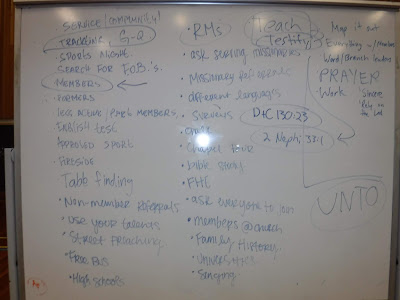 SERVICE/COMMUNITY!
TRACKTING, S-Q
SPORTS NIGHT
SEARCH FOR F.O.B.'s.
MEMBERS
FORMERS
LESS ACTIVE / PART MEMBERS
ENGLISH CLASS
APPROVED SPORT
FIRESIDE
Table finding
Non-member Referrals
Use your talents
Street preaching
Free BUS
High schools
RMs
ask serving missionaries
Missionary
different languages
Surveys
Chapel tour
bible study
FHE
ask everyone to join
members @ church
Family History
Universities
Singing
Teach
Testify
D+C 130:23
2 Nephi 33:1
Map it out
Everything w/ Members
Ward/Branch leaders
PRAYER
Work
Sincere
Rely on the Lord
UNTO